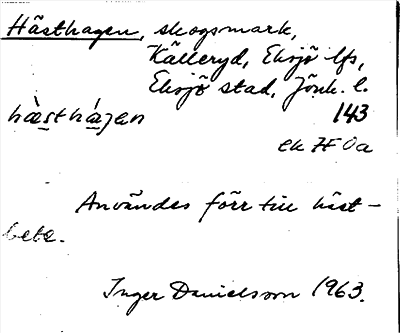 Hästhagen, skogsmark,
Källeryd, Eksjö lfs,
Eksjö stad, Jönk. l.
hàsthájen 143
ek 7F 0a
Användes förr till häst-
bete.
Inger Danielsson 1963.